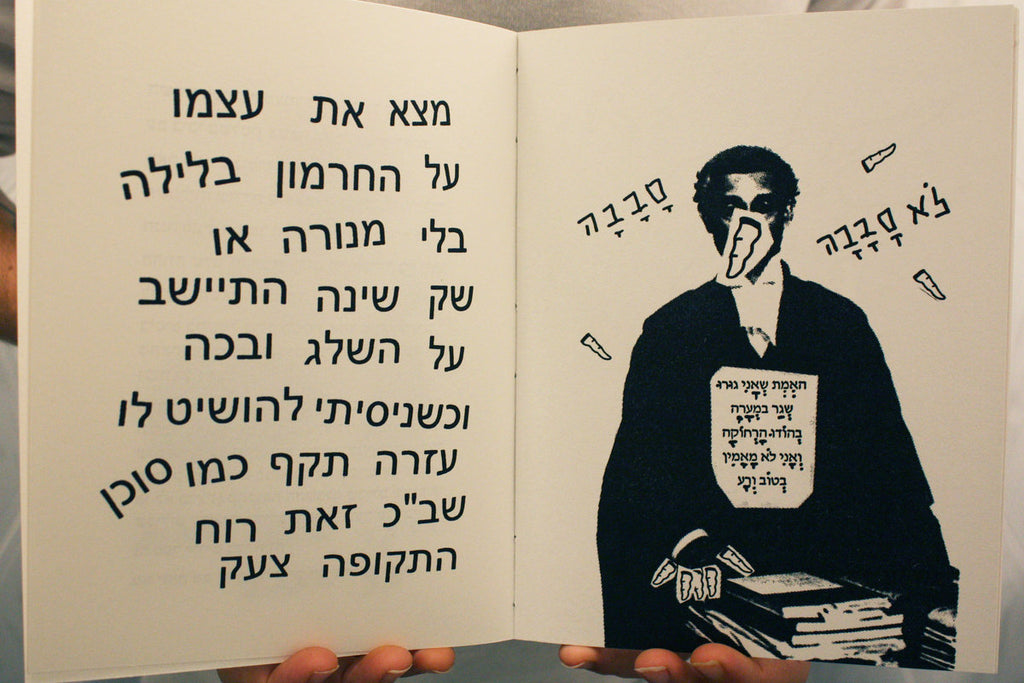 מצא את עצמו
על החרמון בלילה
בלי מנורה או
שק שינה התיישב
על השלג ובכה
וכשניסיתי להושיט לו
עזרה תקף כמו סוכן
שב"כ זאת רוח
התקופה צעק
סָבָבָה
לֹא סָבָבָה
הָאֱמֶת שֶׁאֲנִי גּוּרוּ
שֶׁגָּר בִּמְעָרָה
בְּהוֹדוּ הָרְחוֹקָה
וַאֲנִי לֹא מַאֲמִין
בְּטוֹב וָרָע